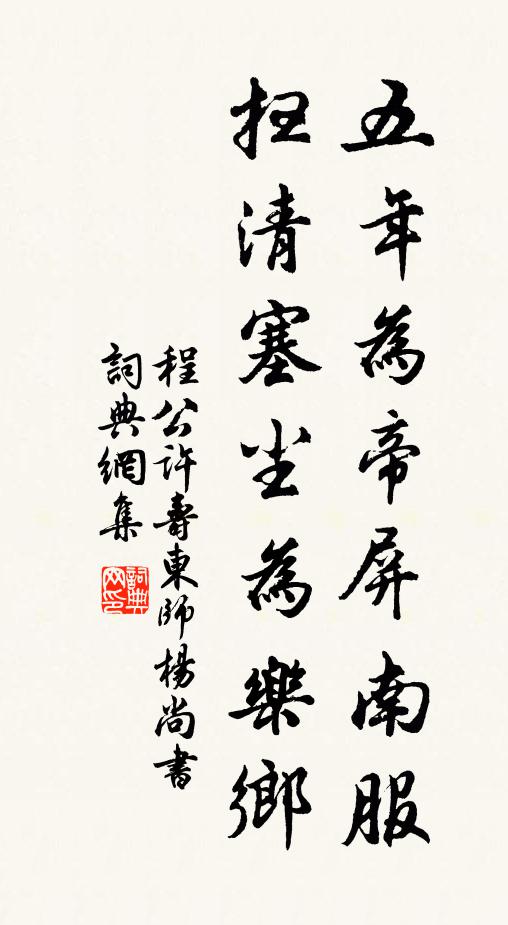 五年為帝屏南服
扫清塞尘為樂鄉
程公許壽東師楊尚書
詞典網集
詞典網印